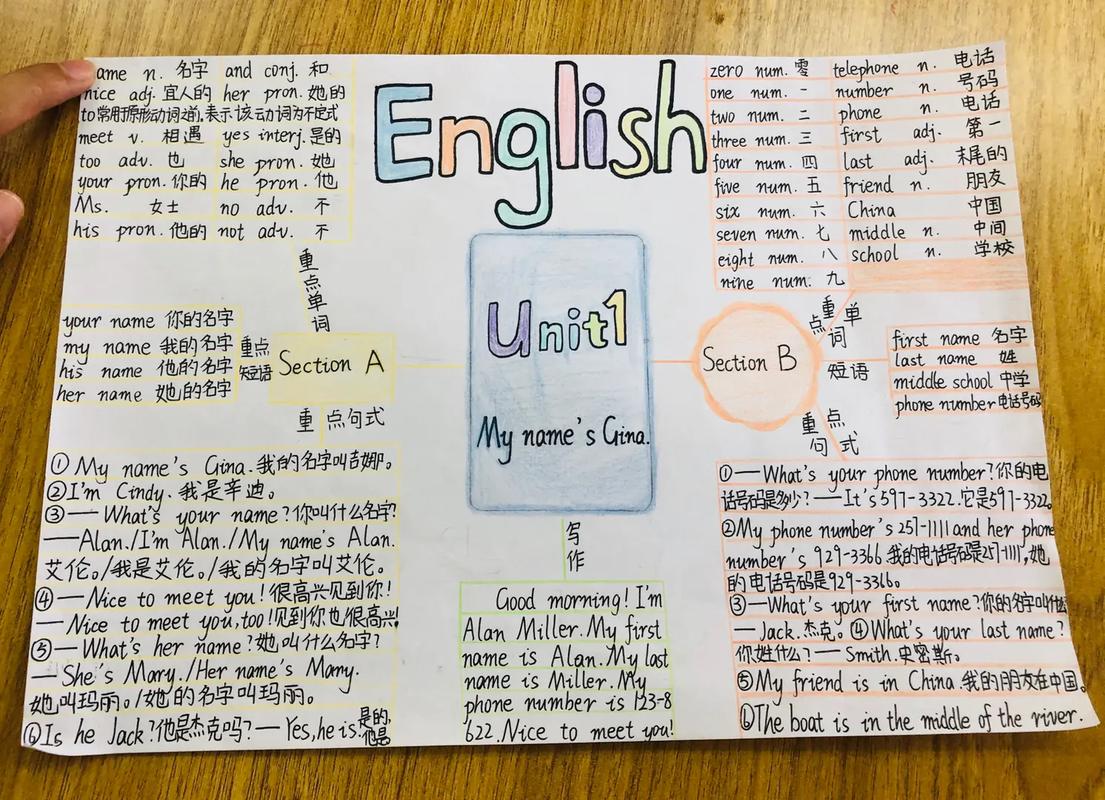 English
ame n. 名字 and conj. 和
nice adj. 宜人的 her pron. 她的
to常用于原形动词之前,表示该动词为不定式
meet v. 相遇 yes interj. 是的
too adv. 也 she pron. 她
your pron. 你的 he pron. 他
Ms. 女士 no adv. 不
his pron. 他的 not adv. 不
重点单词
your name 你的名字
my name 我的名字
his name 他的名字
her name 她的名字
重点
短语
Section A
重点句式
①My name's Gina.我的名字叫吉娜。
②I'm Cindy.我是辛迪。
③—What's your name?你叫什么名字?
—Alan./I'm Alan./My name's Alan.
艾伦。/我是艾伦。/我的名字叫艾伦。
④—Nice to meet you!很高兴见到你!
—Nice to meet you,too!见到你也很高兴!
⑤—What's her name?她叫什么名字?
—She's Mary./Her name's Mary.
她叫玛丽。/她的名字叫玛丽。
⑥Is he Jack?他是杰克吗?—Yes,he is.是的,
他是
Unit1
My name's Gina.
写作
Good morning! I'm
Alan Miller.My first
name is Alan.My last
name is Miller.My
phone number is 123-8
622.Nice to meet you!
zero num. 零 telephone n. 电话
one num. 一 number n. 号码
two num. 二 phone n. 电话
three num. 三 first adj. 第一
four num. 四 last adj. 末尾的
five num. 五 friend n. 朋友
six num. 六 China 中国
seven num. 七 middle n. 中间
eight num. 八 school n. 学校
nine num. 九
重点单词
Section B
短语
first name 名字
last name 姓
middle school 中学
phone number 电话号码
重点
句式
①—What's your phone number?你的电
话号码是多少?—It's 597-3322.它是597-3322.
②My phone number's 257-1111 and her phone
number's 929-3366.我的电话号码是257-1111,她
的电话号码是929-3366。
③—What's your first name?你的名字叫什么
—Jack.杰克。④What's your last name?
你姓什么?—Smith.史密斯。
⑤My friend is in China 我的朋友在中国。
⑥The boat is in the middle of the river.